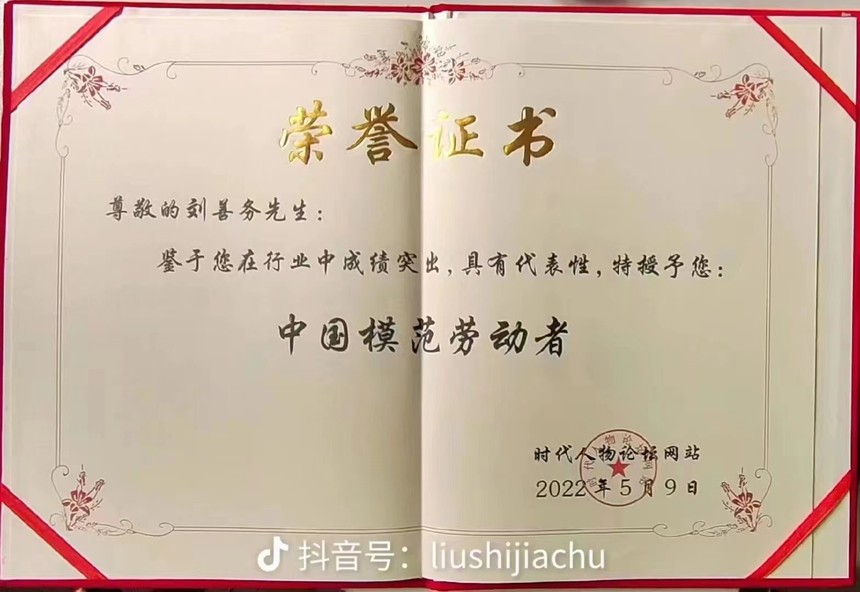 荣誉证书
尊敬的刘善务先生：
鉴于您在行业中成绩突出，具有代表性，特授予您：
中国模范劳动者
时代人物论坛网站
2022年5月9日
时代人物论坛网站
抖音号：liushijiachu